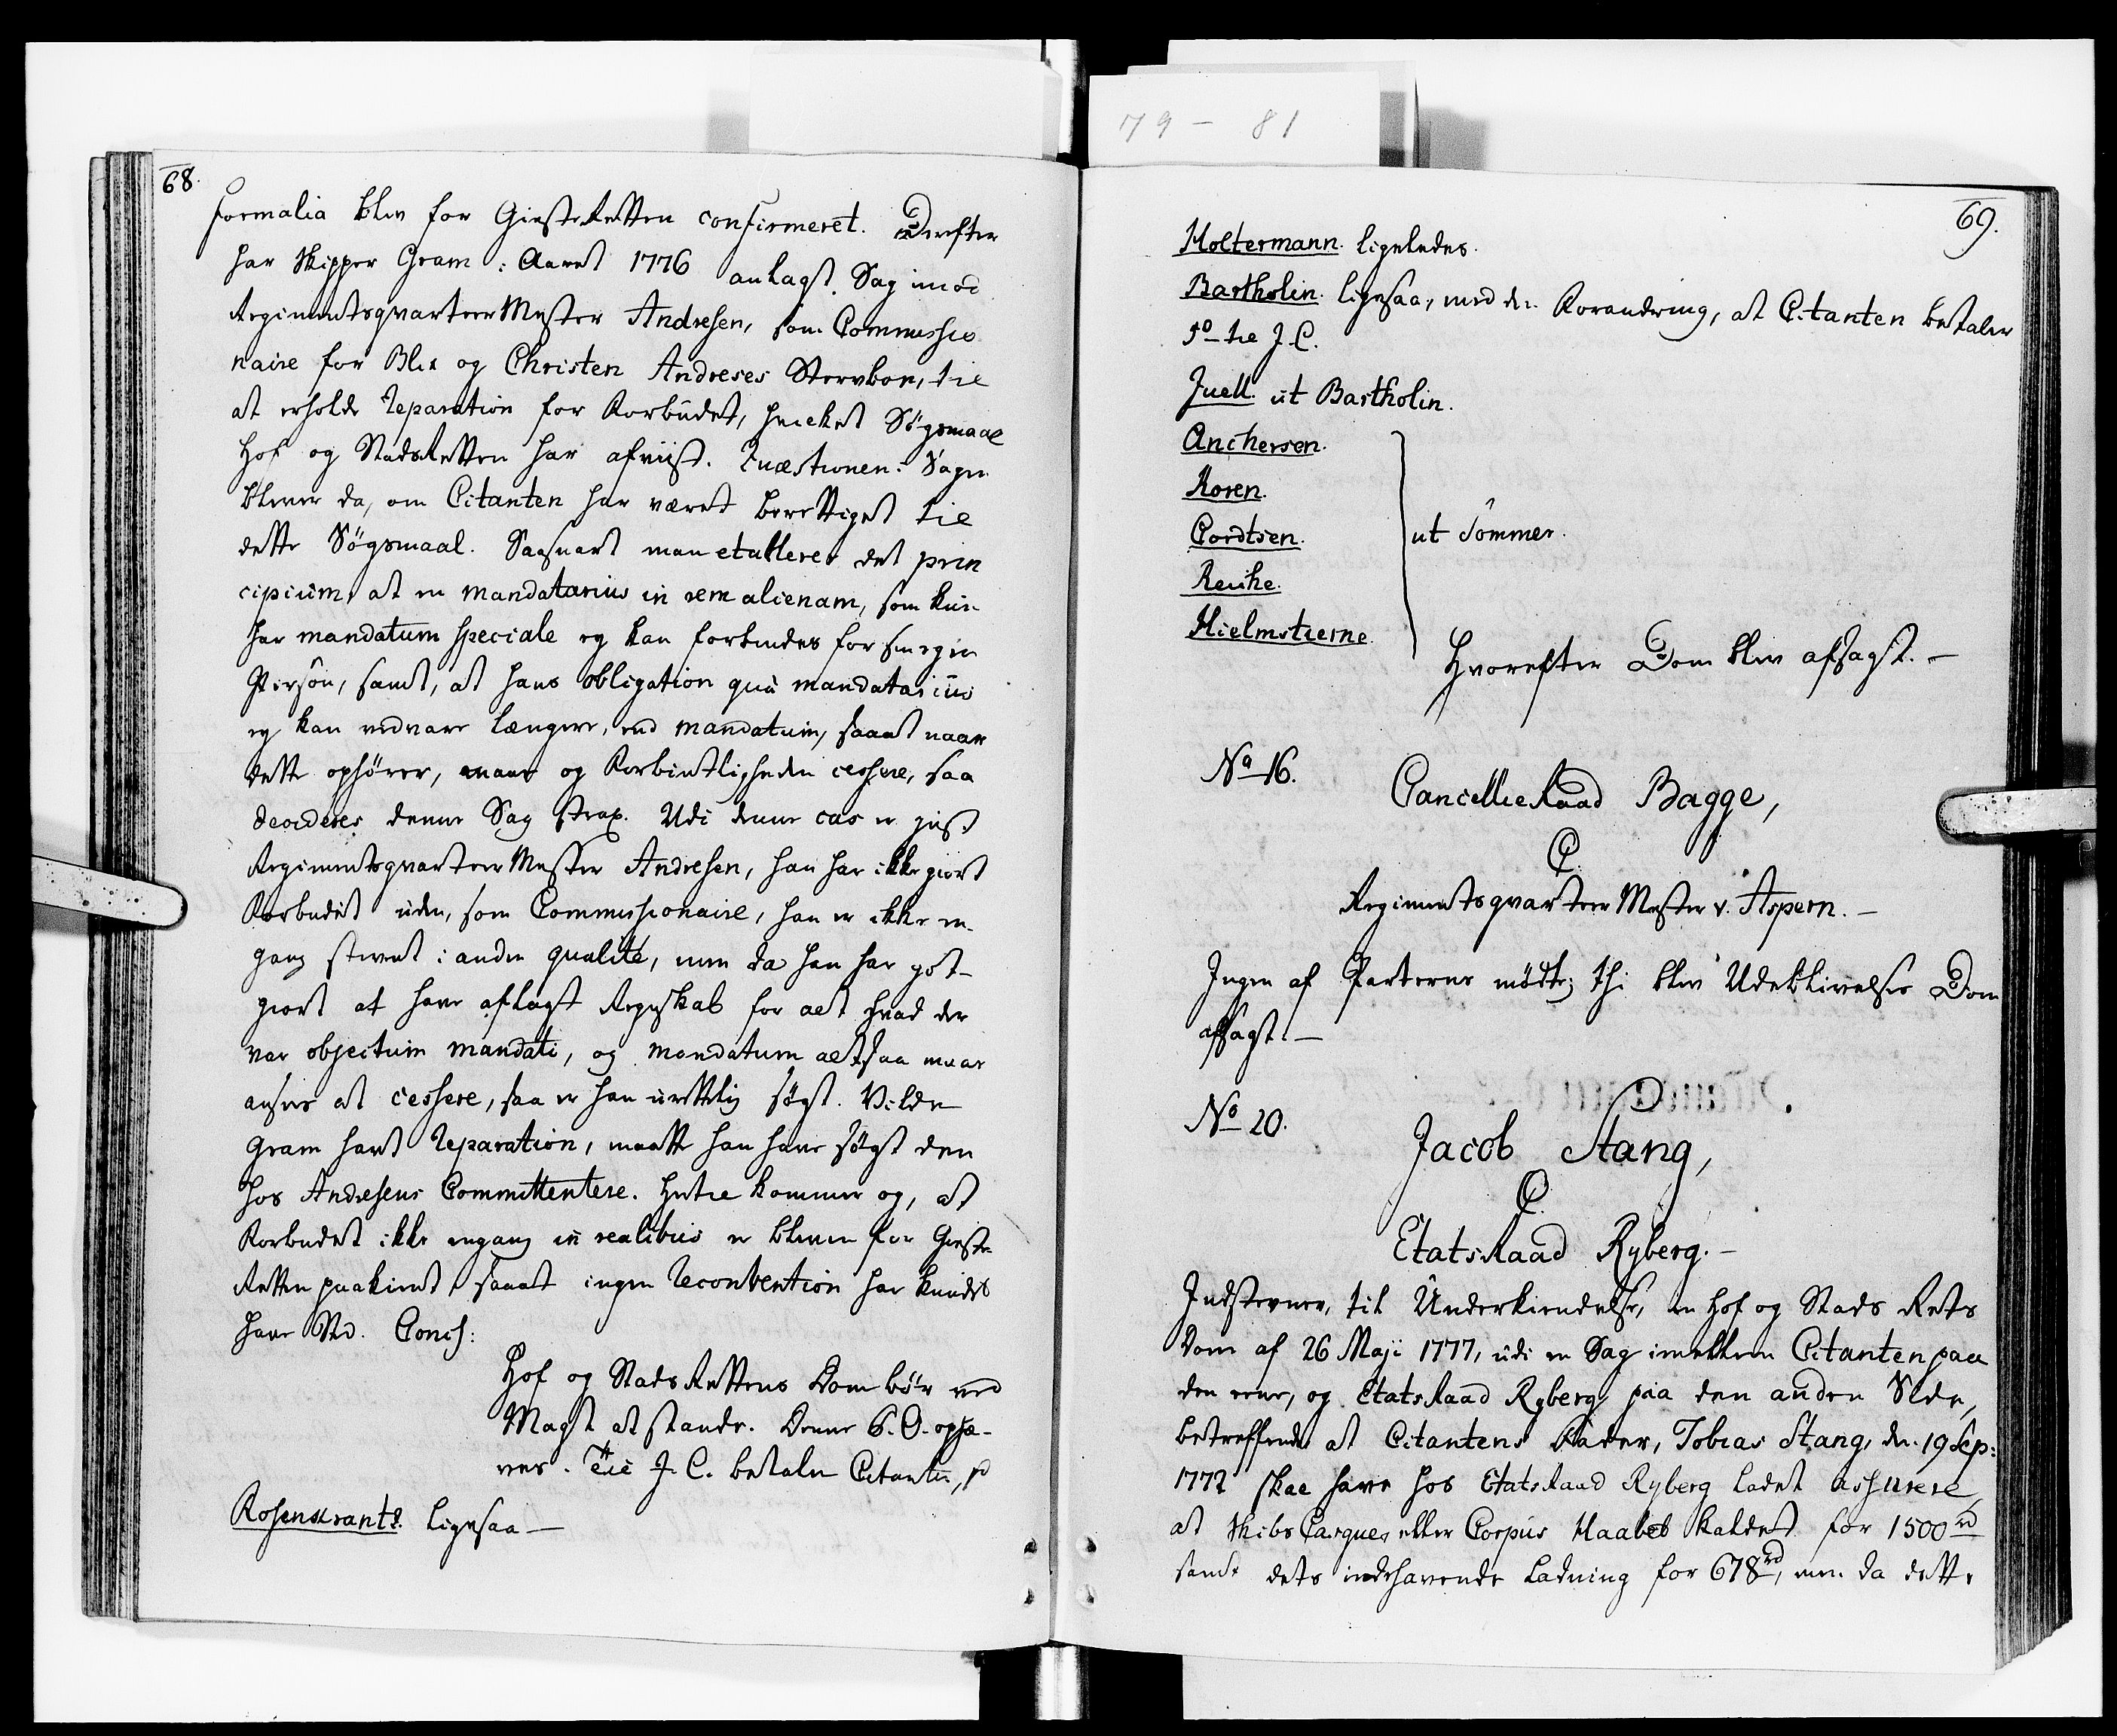 79 - 81
68.
formalia blev for GiesteRetten confirmeret. Derefter
har Skipper Gram i Aaret 1776 anlagt Sag imod
RegimentsqvarteerMester Andresen, som Commissio
naire for Blix og Christen Andreses Stervboe, til
at erholde Reparation for Forbudet, hvilket Søgsmaal
Hof og StadsRetten har afviist. Quæstionen i Sagen
bliver da, om Citanten har været berettiget til
dette Søgsmaal. Saasnart man etablerer det prin
cipium, at en mandatarius in rem alienam, som kun
har mandatum speciale ey kan forbindes for sin egen
Person, samt, at hans obligation quà mandatarius
ey kan vedvare længere, end mandatum, saa at naar
dette ophører, maae og Forbintligheden cessere, saa
decideres denne Sag strax. Udi denne cas er just
RegimentsqvarteerMester Andresen, han har ikke giort
Forbudet uden, som Commissionaire, han er ikke en
gang stevnt i anden qualité, men da han har got-
giort at have aflagt Regnskab for alt hvad der
var objectum mandati, og mandatum altsaa maae
ansees at cessere, saa er han urettelig søgt. Vilde
Gram havt Reparation, maatte han have søgt den
hos Andresens Committentere. Hertil kommer og, at
Forbudet ikke engang in realibus er bleven for Gieste
Retten paakiendt, saa at ingen Reconvention har kundet
have Sted. Concl:
Hof og StadsRettens Dom bør ved
Magt at stande. Denne S. O. ophæ-
ves. Til J. C. betaler Citanten 1 rd
Rosenkrantz. Ligesaa —
69.
Holtermann. ligeledes.
Bartholin. ligesaa, med den Forandring, at Citanten betaler
5 rd til J. C.
Juell. ut Bartholin.
Anchersen.
Koren.
Cordtsen.
ut Sommer.
Reiche.
Hielmstierne.
Hvorefter Dom blev afsagt. —
No 16.
CancellieRaad Bagge,
C.
RegimentsqvarteerMester v. Aspern. —
Ingen af Parterne mødte; thi blev Udeblivelses Dom
afsagt. —
No 20.
Jacob Stang,
C.
EtatsRaad Ryberg. —
Indstevner, til Underkiendelse, en Hof og Stads Rets
Dom af 26 Maji 1777, udi en Sag imellem Citanten paa
den eene, og EtatsRaad Ryberg paa den anden Side,
betreffende at Citantens Fader, Tobias Stang, den 19 Sep:
1772 skal have hos EtatsRaad Ryberg ladet assurere,
at Skibs Casque, eller Corpus Haabet kaldet for 1500 rd
samt dets indehavende Ladning for 678 rd, men da dette